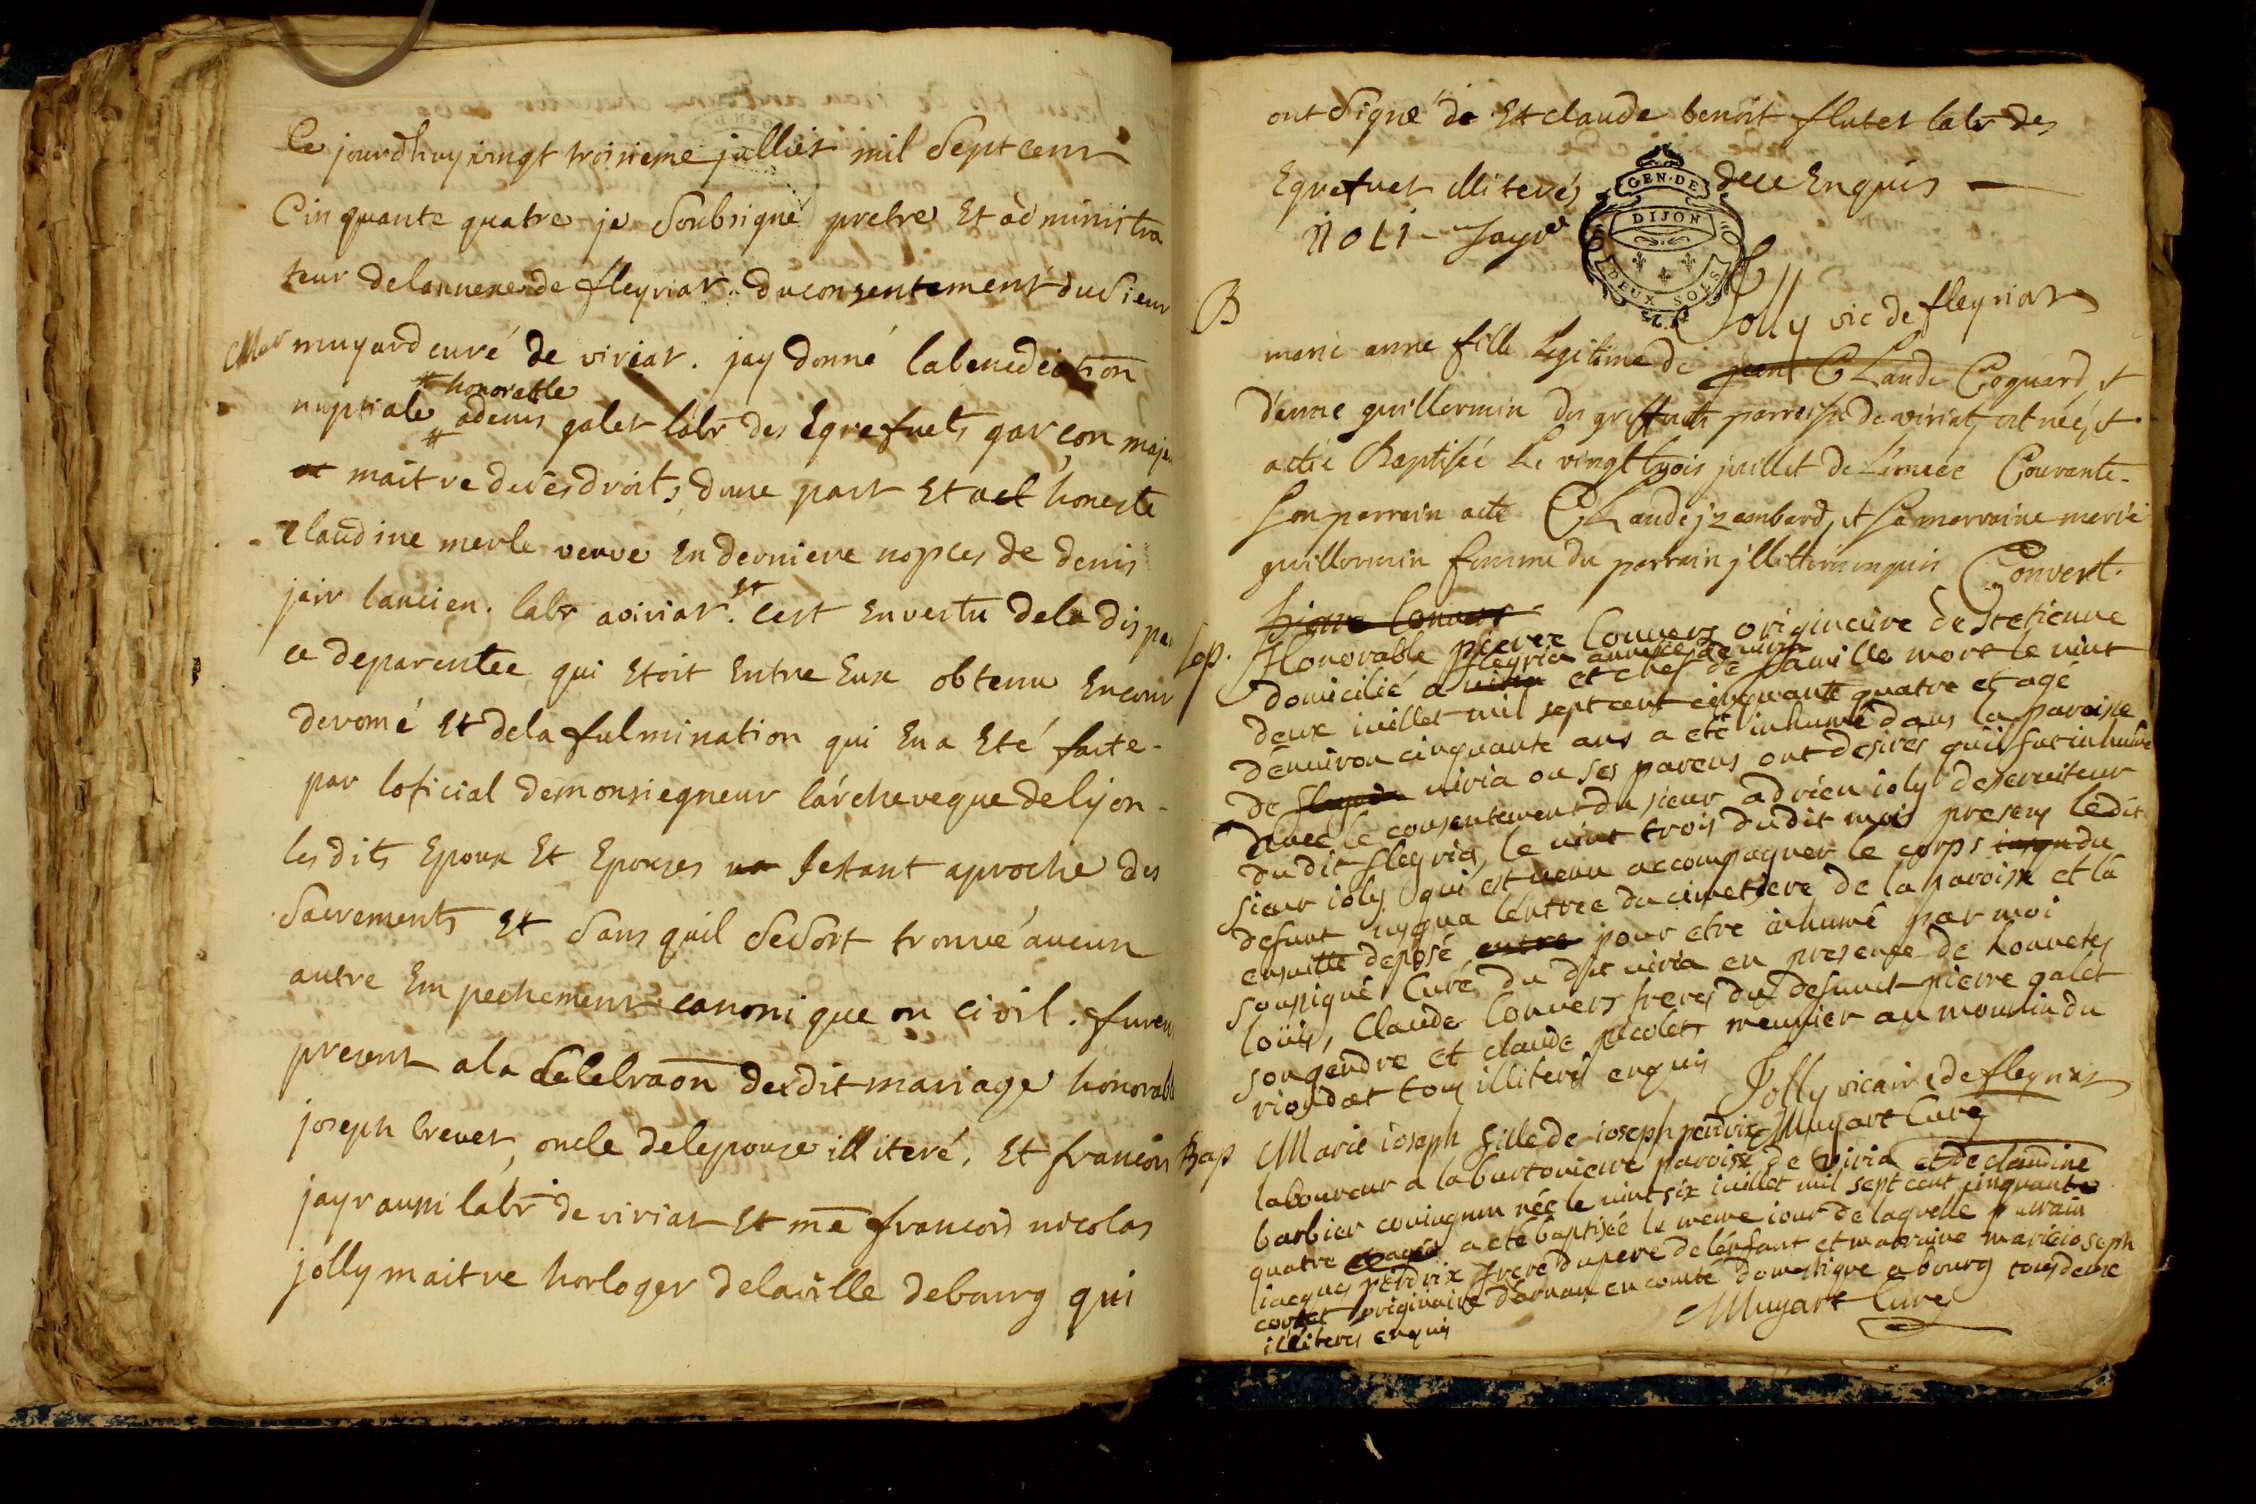 Ce jourdhuy vingt troisieme julliet mil Sept cens
Cinquante quatre je Soubsigné pretre Et administra
teur delannexe de fleyriat. du consentement du Sieur
Mar muyard curé de viriat. jay donné labenediction
# honorable
nuptiale # adenis galet labr des Egrefuets garçon maje
maitre desesdroits, dune part Et honeste
claudine merle veuve En derniere nopces de denis
jair lancien. labr aviriat. Et cest Envertu dela dispen
ce deparentee qui Etoit Entre Eux obtenu Encour
deromé Et dela fulmination qui En a Eté faite-
par loficial demonsiegneur lárcheveque delyon-
les dits Epoux Et Epouzes sestant aproché des
Sacrements Et Sans quil Sesoit trouvé aucun
autre Empechement canonique ou civil. furen
present ala Celebraon desdit mariage honorabl
joseph brevet, oncle delepouze illiteré, Et francois
jayr aussi labr de viriat Et me francois nicolas
jolly maitre horloger delaville debourg qui
ont Signé de Et claude benoit flutet labr des
Egrefuet illiterés dece Enquis —
GEN. DE
DIJON
DEUX SOLS
joli - Jayr
Jolly vic de fleyriat
B
marie anne fille Legitime de jean CLaude Coguard, et
d'anne guillermin des greffuets parroisse de viriat, est née, et
a eté Baptisée Le vingt trois juillet de L'année Courante.
son parrain a eté CLaude jzambard, et sa marraine marie
guillermin femme du parrain jllitterés enquis Convert.
pierre Convers
Sep. Honorable pierre Convers origineire de St etienne
fleyria annexe de viria
domicilié a viria et chef de famille mort le vint
deux iuillet mil sept cent cinquante quatre et agé
denuiron cinquante ans a eté inhumé dans la paroisse
de fleyria viria ou ses parens ont desirés qu'il fut inhumé
avec le consentement du sieur adrien ioly desseruiteur
du dit fleyria, le vint trois du dit mois presens ledit
sieur ioly qui est venu accompagner le corps iusqu du
defunt iusqua léntree du cimetiere de la paroisse et la
ensuitte deposé entre pour etre inhumé par moi
soussigné Curé du dit viria en presence de honnetes
loüis, Claude Convers freres du defunct pierre galet
songendre et claude picolet meunier au moulin du
riondat tous illiterés enquis
Jolly vicaire de fleyriat
Muyart Curé
Bap Marie ioseph fille de ioseph perdrix
laboureur a la bartoniere paroisse de viria et de claudine
barbier coniugum née le vint six iuillet mil sept cent cinquante
quatre a eté baptisée le meme iour de laquelle parrain
iacques perdrix frere du pere de lénfant et marraine marie ioseph
cortet originaire dárnan en comté domestique a bourg tous deux
illiteres enquis
Muyart Curé